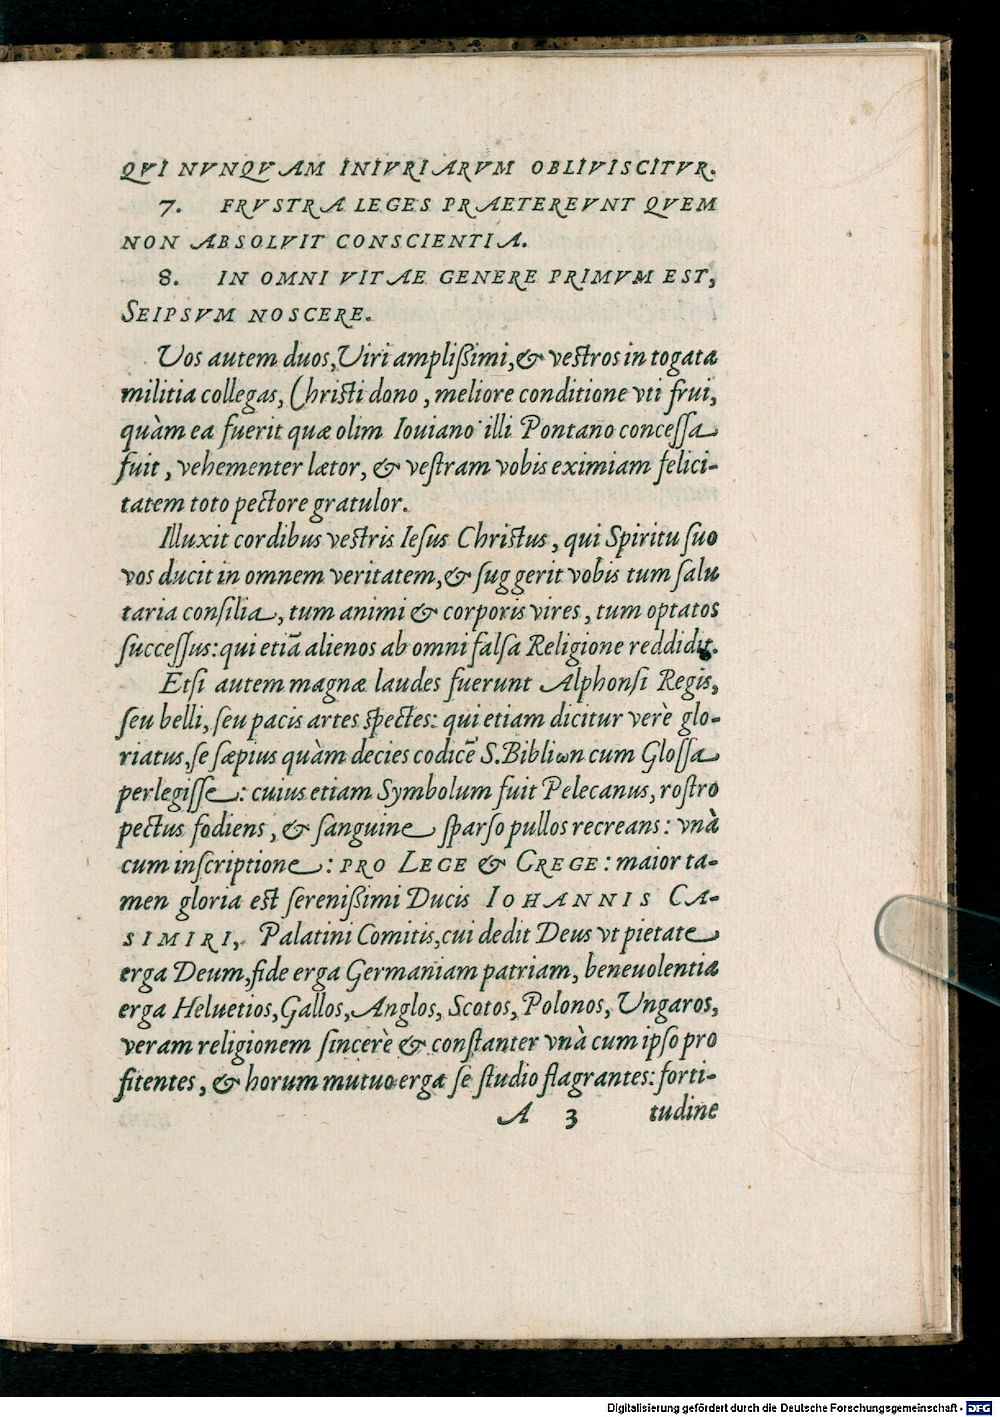 QVI NVNQVAM INIVRIARVM OBLIVISCITVR.
7. FRVSTRA LEGES PRAETEREVNT QVEM
NON ABSOLVIT CONSCIENTIA.
8. IN OMNI VITAE GENERE PRIMVM EST,
SEIPSVM NOSCERE.
Vos autem duos, Viri amplißimi, & vestros in togata
militia collegas, Christi dono, meliore conditione vti frui,
quàm ea fuerit quæ olim Iouiano illi Pontano concessa
fuit, vehementer lætor, & vestram vobis eximiam felici-
tatem toto pectore gratulor.
Illuxit cordibus vestris Iesus Christus, qui Spiritu suo
vos ducit in omnem veritatem, & suggerit vobis tum salu
taria consilia, tum animi & corporis vires, tum optatos
successus: qui etiā alienos ab omni falsa Religione reddidit.
Etsi autem magnæ laudes fuerunt Alphonsi Regis,
seu belli, seu pacis artes spectes: qui etiam dicitur verè glo-
riatus, se sæpius quàm decies codicē S. Bibliωn cum Glossa
perlegisse: cuius etiam Symbolum fuit Pelecanus, rostro
pectus fodiens, & sanguine sparso pullos recreans: vnà
cum inscriptione: PRO LEGE & GREGE: maior ta-
men gloria est serenißimi Ducis IOHANNIS CA-
SIMIRI, Palatini Comitis, cui dedit Deus vt pietate
erga Deum, fide erga Germaniam patriam, beneuolentia
erga Heluetios, Gallos, Anglos, Scotos, Polonos, Vngaros,
veram religionem sincerè & constanter vnà cum ipso pro
fitentes, & horum mutuo erga se studio flagrantes: forti-
A 3 tudine
Digitalisierung gefördert durch die Deutsche Forschungsgemeinschaft - DFG